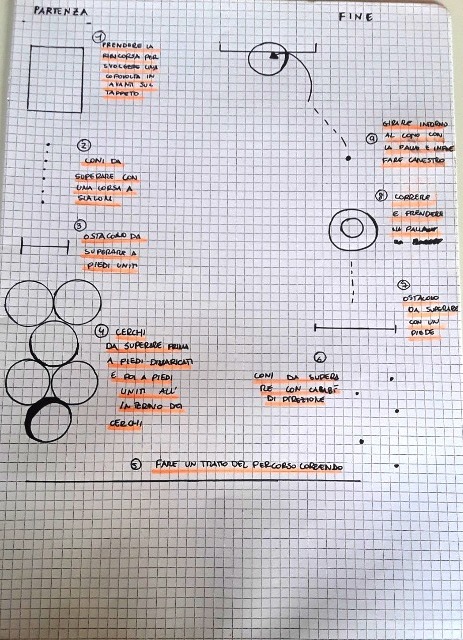 PARTENZA
FINE
1
PRENDERE LA
RINCORSA PER
SVOLGERE UNA
CAPOVOLTA IN
AVANTI SUL
TAPPETO
2
CONI DA
SUPERARE CON
UNA CORSA A
SLALOM
3
OSTACOLO DA
SUPERARE A
PIEDI UNITI
4 CERCHI
DA SUPERARE PRIMA
A PIEDI DIVARICATI
E POI A PIEDI
UNITI ALL'
INTERNO DEI
CERCHI
5 FARE UN TRATO DEL PERCORSO CORRENDO
6
CONI DA SUPERA
RE CON CAMBI
DI DIREZIONE
OSTACOLO
DA SUPERARE
CON UN
PIEDE
8 CORRERE
E PRENDERE
LA PALLA
9
GIRARE INTORNO
AL CONO CON
LA PALLA E
FARE CANESTRO